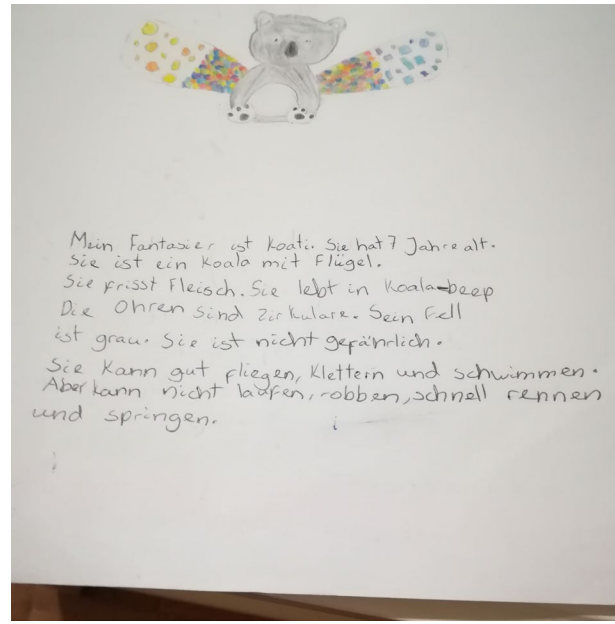 Mein Fantasier ist Koati. Sie hat 7 Jahre alt.
Sie ist ein Koala mit Flügel.
Sie frisst Fleisch. Sie lebt in Koala-beep
Die Ohren sind zirkulare. Sein Fell
ist grau. Sie ist nicht gefährlich.
Sie kann gut fliegen, klettern und schwimmen.
Aber kann nicht laufen, robben, schnell rennen
und springen.